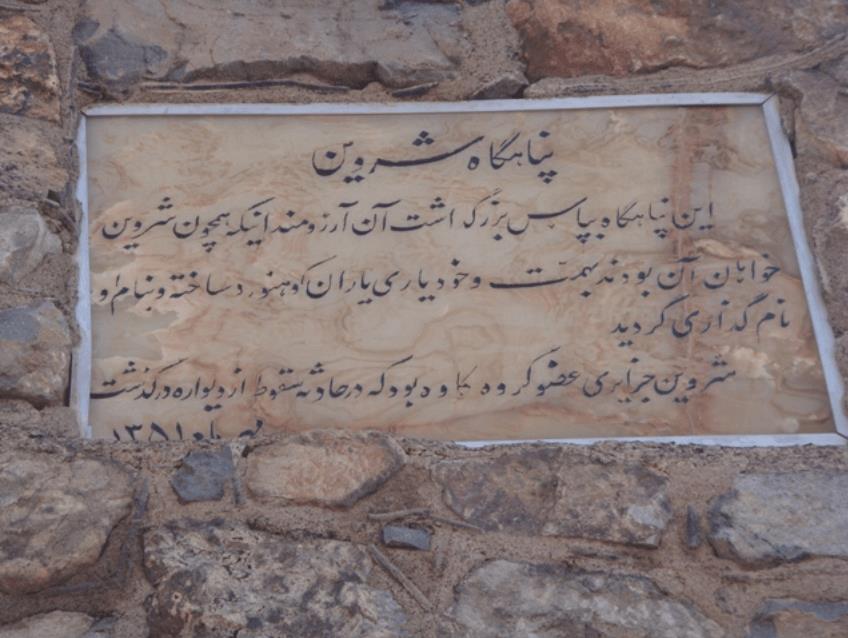 پناهگاه شروین
این پناهگاه بپاس بزرگداشت آن آرزومندانیکه همچون شروین
خواهان آن بودند بهمت وخودیاری یاران کوهنورد ساخته و بنام او
نام گذاری گردید
شروین جزایری عضو گروه کاوه بود که در حادثه سقوط از دیواره درگذشت
۱۳۵۱